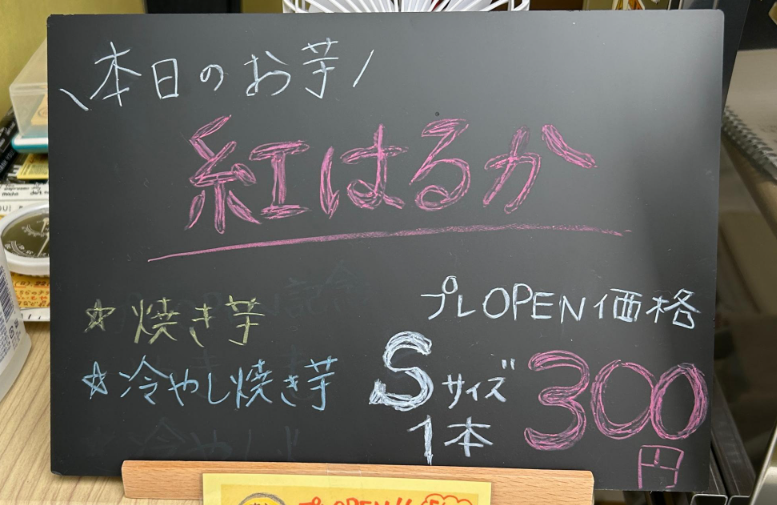 \本日のお芋/
紅はるか
☆焼き芋
☆冷やし焼き芋
プレOPEN価格
Sサイズ
1本
300
円
プレOPEN!!